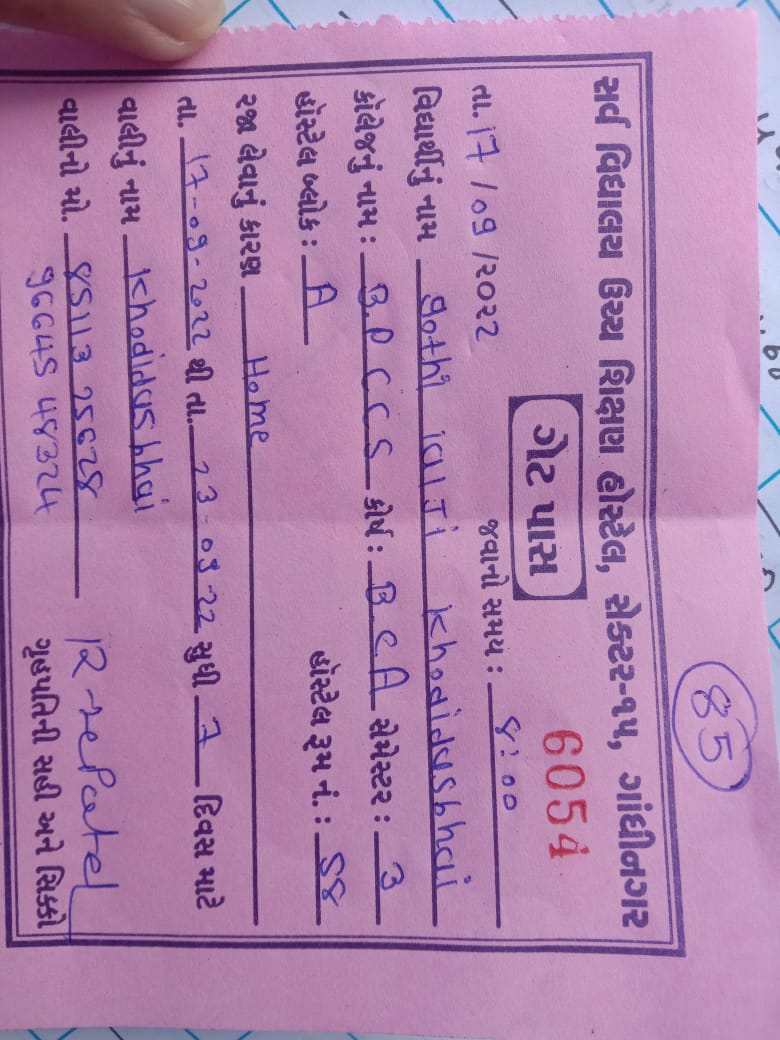 85
સર્વ વિદ્યાલય ઉચ્ચ શિક્ષણ હોસ્ટેલ, સેક્ટર-૧૫, ગાંધીનગર
ગેટ પાસ
6054
તા. 17 / 09 / 2022 જવાનો સમય : 8:00
વિદ્યાર્થીનું નામ gothi Khodidasbhai
કોલેજનું નામ : B.P.C.C.S કોર્ષ : BCA સેમેસ્ટર : 3
હોસ્ટેલ બ્લોક : A હોસ્ટેલ રૂમ નં. : S8
રજા લેવાનું કારણ Home
તા. 17-09-2022 થી તા. 23-09-22 સુધી 7 દિવસ માટે
વાલીનું નામ Khodidasbhai
વાલીનો મો. 85113 25628
96645 48324
ગૃહપતિની સહી અને સિક્કો